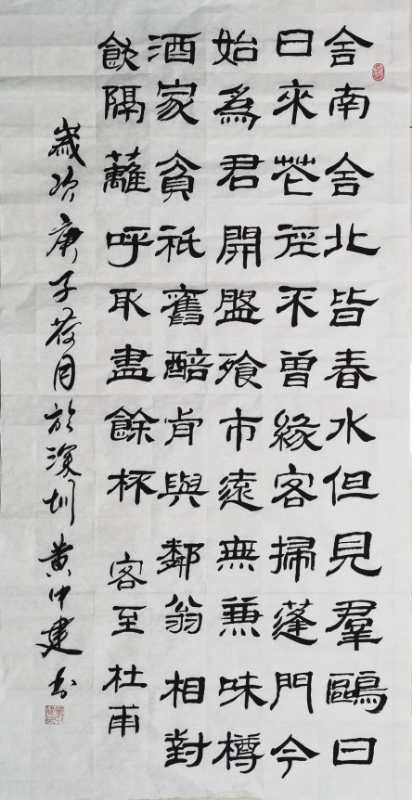 舍南舍北皆春水但見羣鷗日
日來花徑不曾緣客掃蓬門今
始為君開盤飱市遠無兼味樽
酒家貧祇舊醅肯與鄰翁相對
飲隔蘺呼取盡餘杯 客至 杜甫
歲次庚子荷月於深圳黄仲建书